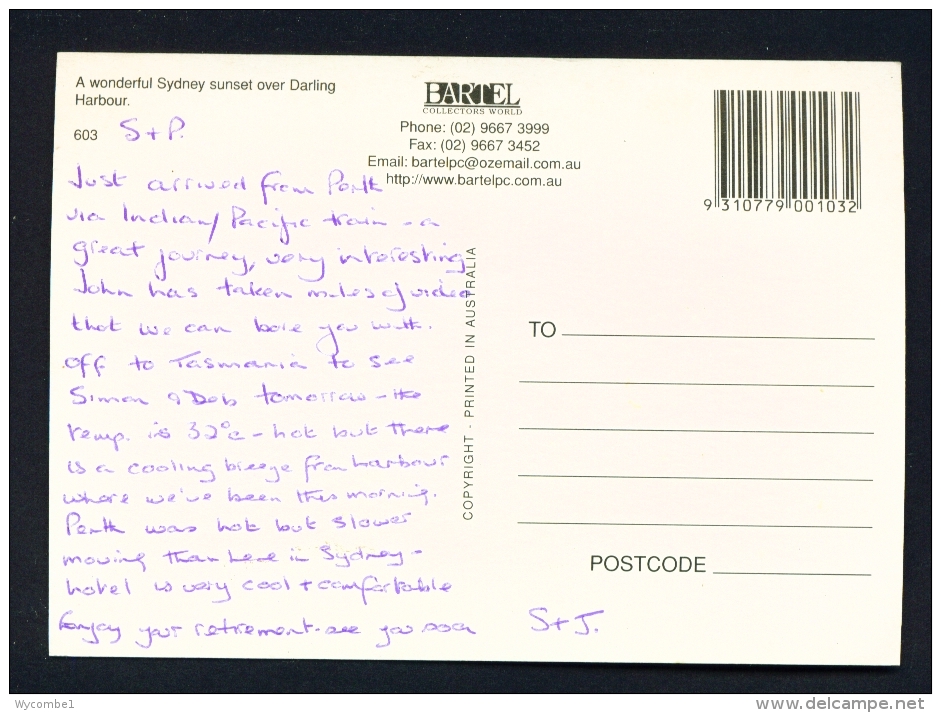 A wonderful Sydney sunset over Darling
Harbour.
603
BARTEL
COLLECTORS WORLD
Phone: (02) 9667 3999
Fax: (02) 9667 3452
Email: bartelpc@ozemail.com.au
http://www.bartelpc.com.au
9 310779 001032
S + P.
Just arrived from Perth
via Indian/Pacific train - a
great journey, very interesting
John has taken miles of video
that we can bore you with.
Off to Tasmania to see
Simon & Deb tomorrow - the
temp. is 32°c - hot but there
is a cooling breeze from harbour
where we've been this morning.
Perth was hot but slower
moving than here in Sydney -
hotel is very cool + comfortable
Enjoy your retirement - see you soon
S + J.
COPYRIGHT - PRINTED IN AUSTRALIA
TO
POSTCODE
Wycombe1
www.delcampe.net